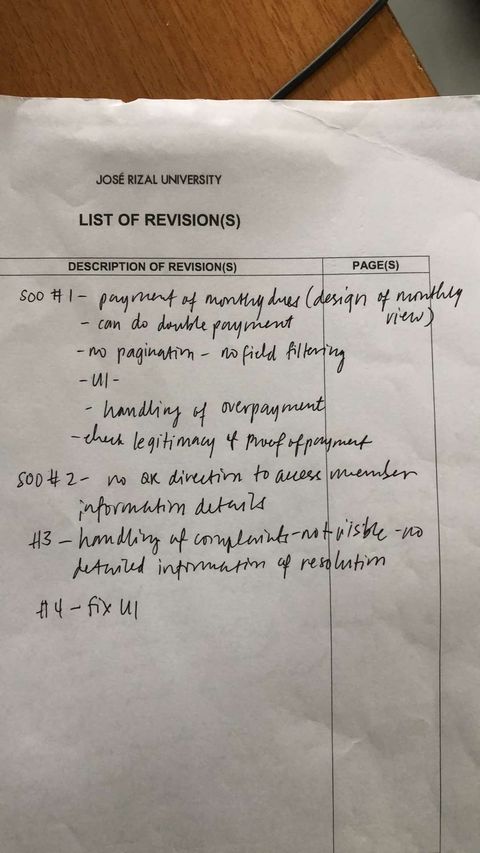 JOSÉ RIZAL UNIVERSITY
LIST OF REVISION(S)
DESCRIPTION OF REVISION(S) PAGE(S)
SOO #1 - payment of monthly dues (design of monthly view)
- can do double payment
- no pagination - no field filtering
- UI -
- handling of overpayment
- check legitimacy of proof of payment
SOO #2 - no direction to access member
information details
#3 - handling of complaints - not visible - no
detailed information of resolution
#4 - fix UI